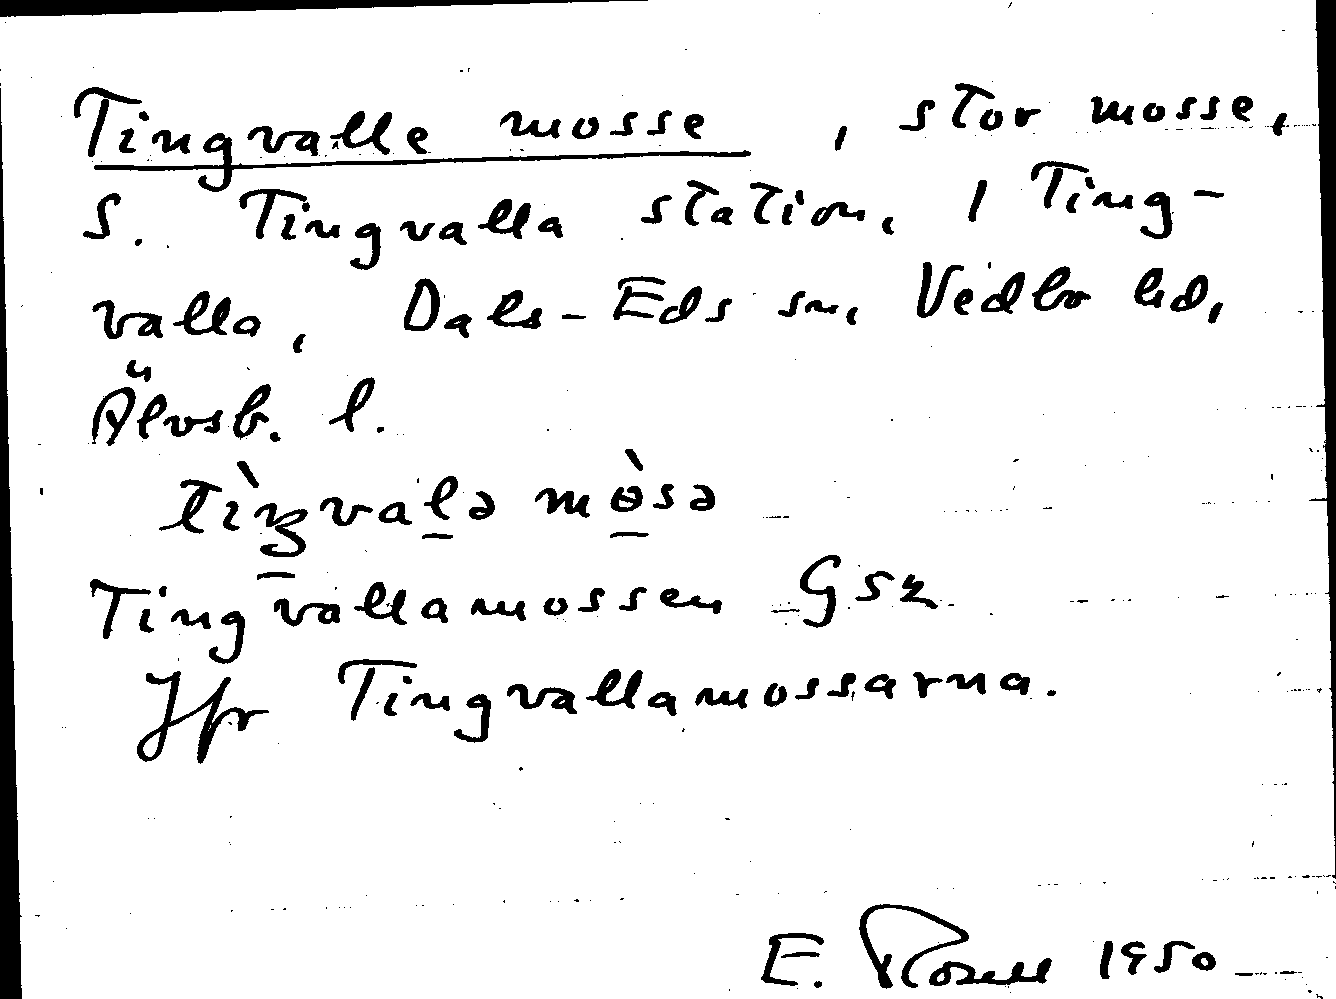 Tingvalle mosse, stor mosse,
S. Tingvalla station, / Ting-
valla, Dals-Eds sn, Vedbo hd,
Älvsb. l.
tìŋvalə mɵ̀sə
Tingvallamossen GSK
Jfr Tingvallamossarna.
E. Rosell 1950